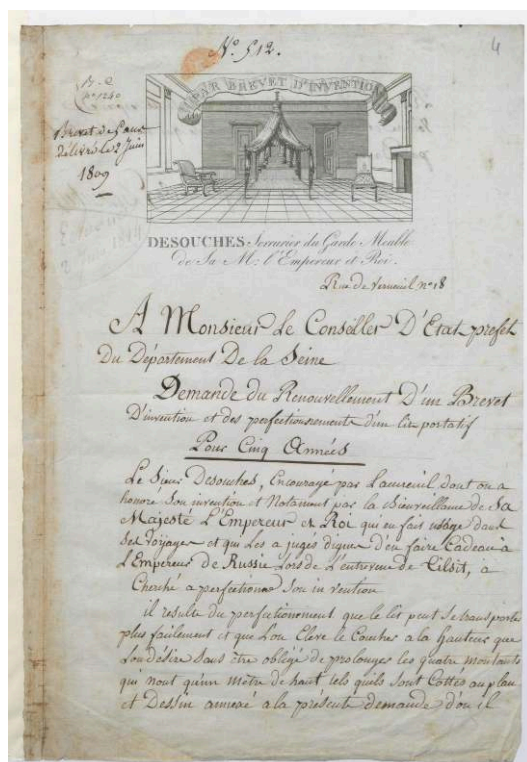 N.º 512.
4
B-2
nº 1240
Brevet de 5 ans
délivré le 2 Juin
1809
PAR BREVET D'INVENTION
DESOUCHES Serrurier du Garde Meuble
de Sa M. l'Empereur et Roi.
Rue de Verneuil nº 18
A Monsieur Le Conseiller D'Etat préfet
Du Département De la Seine
Demande du Renouvellement D'un Brevet
D'invention et des perfectionnements d'un lit portatif
Pour Cinq Années
Le Sieur Desouches, Encouragé par L'accueil dont on a
honoré Son invention et Notament par la Bienveillance de Sa
Majesté L'Empereur et Roi qui en fait usage dans
Ses Voyages et qui Les a jugés digne d'en faire Cadeau à
L'Empereur de Russie Lors de L'entrevue de Tilsit, a
Cherché a perfectionner Son invention
il resulte du perfectionement que le lit peut Se transporter
plus facilement et que L'on Eleve le Coucher a la hauteur que
L'on désire Sans être obligé de prolonger les quatre montants
qui n'ont qu'un mètre de haut tels quils Sont Cottés au plan
et Dessin annexé a la présente demande d'ou il